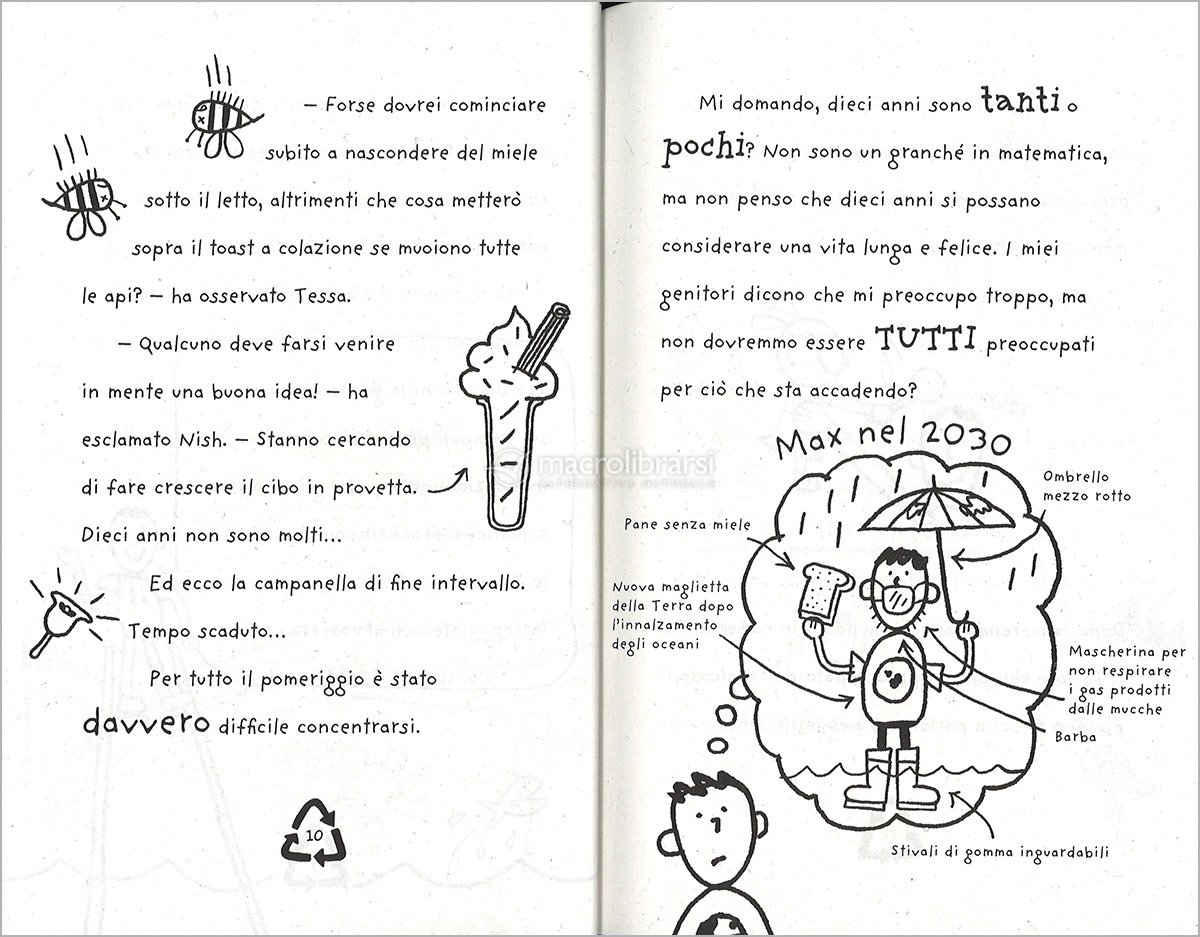 – Forse dovrei cominciare
subito a nascondere del miele
sotto il letto, altrimenti che cosa metterò
sopra il toast a colazione se muoiono tutte
le api? – ha osservato Tessa.
– Qualcuno deve farsi venire
in mente una buona idea! – ha
esclamato Nish. – Stanno cercando
di fare crescere il cibo in provetta.
Dieci anni non sono molti...
Ed ecco la campanella di fine intervallo.
Tempo scaduto...
Per tutto il pomeriggio è stato
davvero difficile concentrarsi.
10
Mi domando, dieci anni sono tanti o
pochi? Non sono un granché in matematica,
ma non penso che dieci anni si possano
considerare una vita lunga e felice. I miei
genitori dicono che mi preoccupo troppo, ma
non dovremmo essere TUTTI preoccupati
per ciò che sta accadendo?
Max nel 2030
Ombrello
mezzo rotto
Pane senza miele
Nuova maglietta
della Terra dopo
l'innalzamento
degli oceani
Mascherina per
non respirare
i gas prodotti
dalle mucche
Barba
Stivali di gomma inguardabili
macrolibrarsi